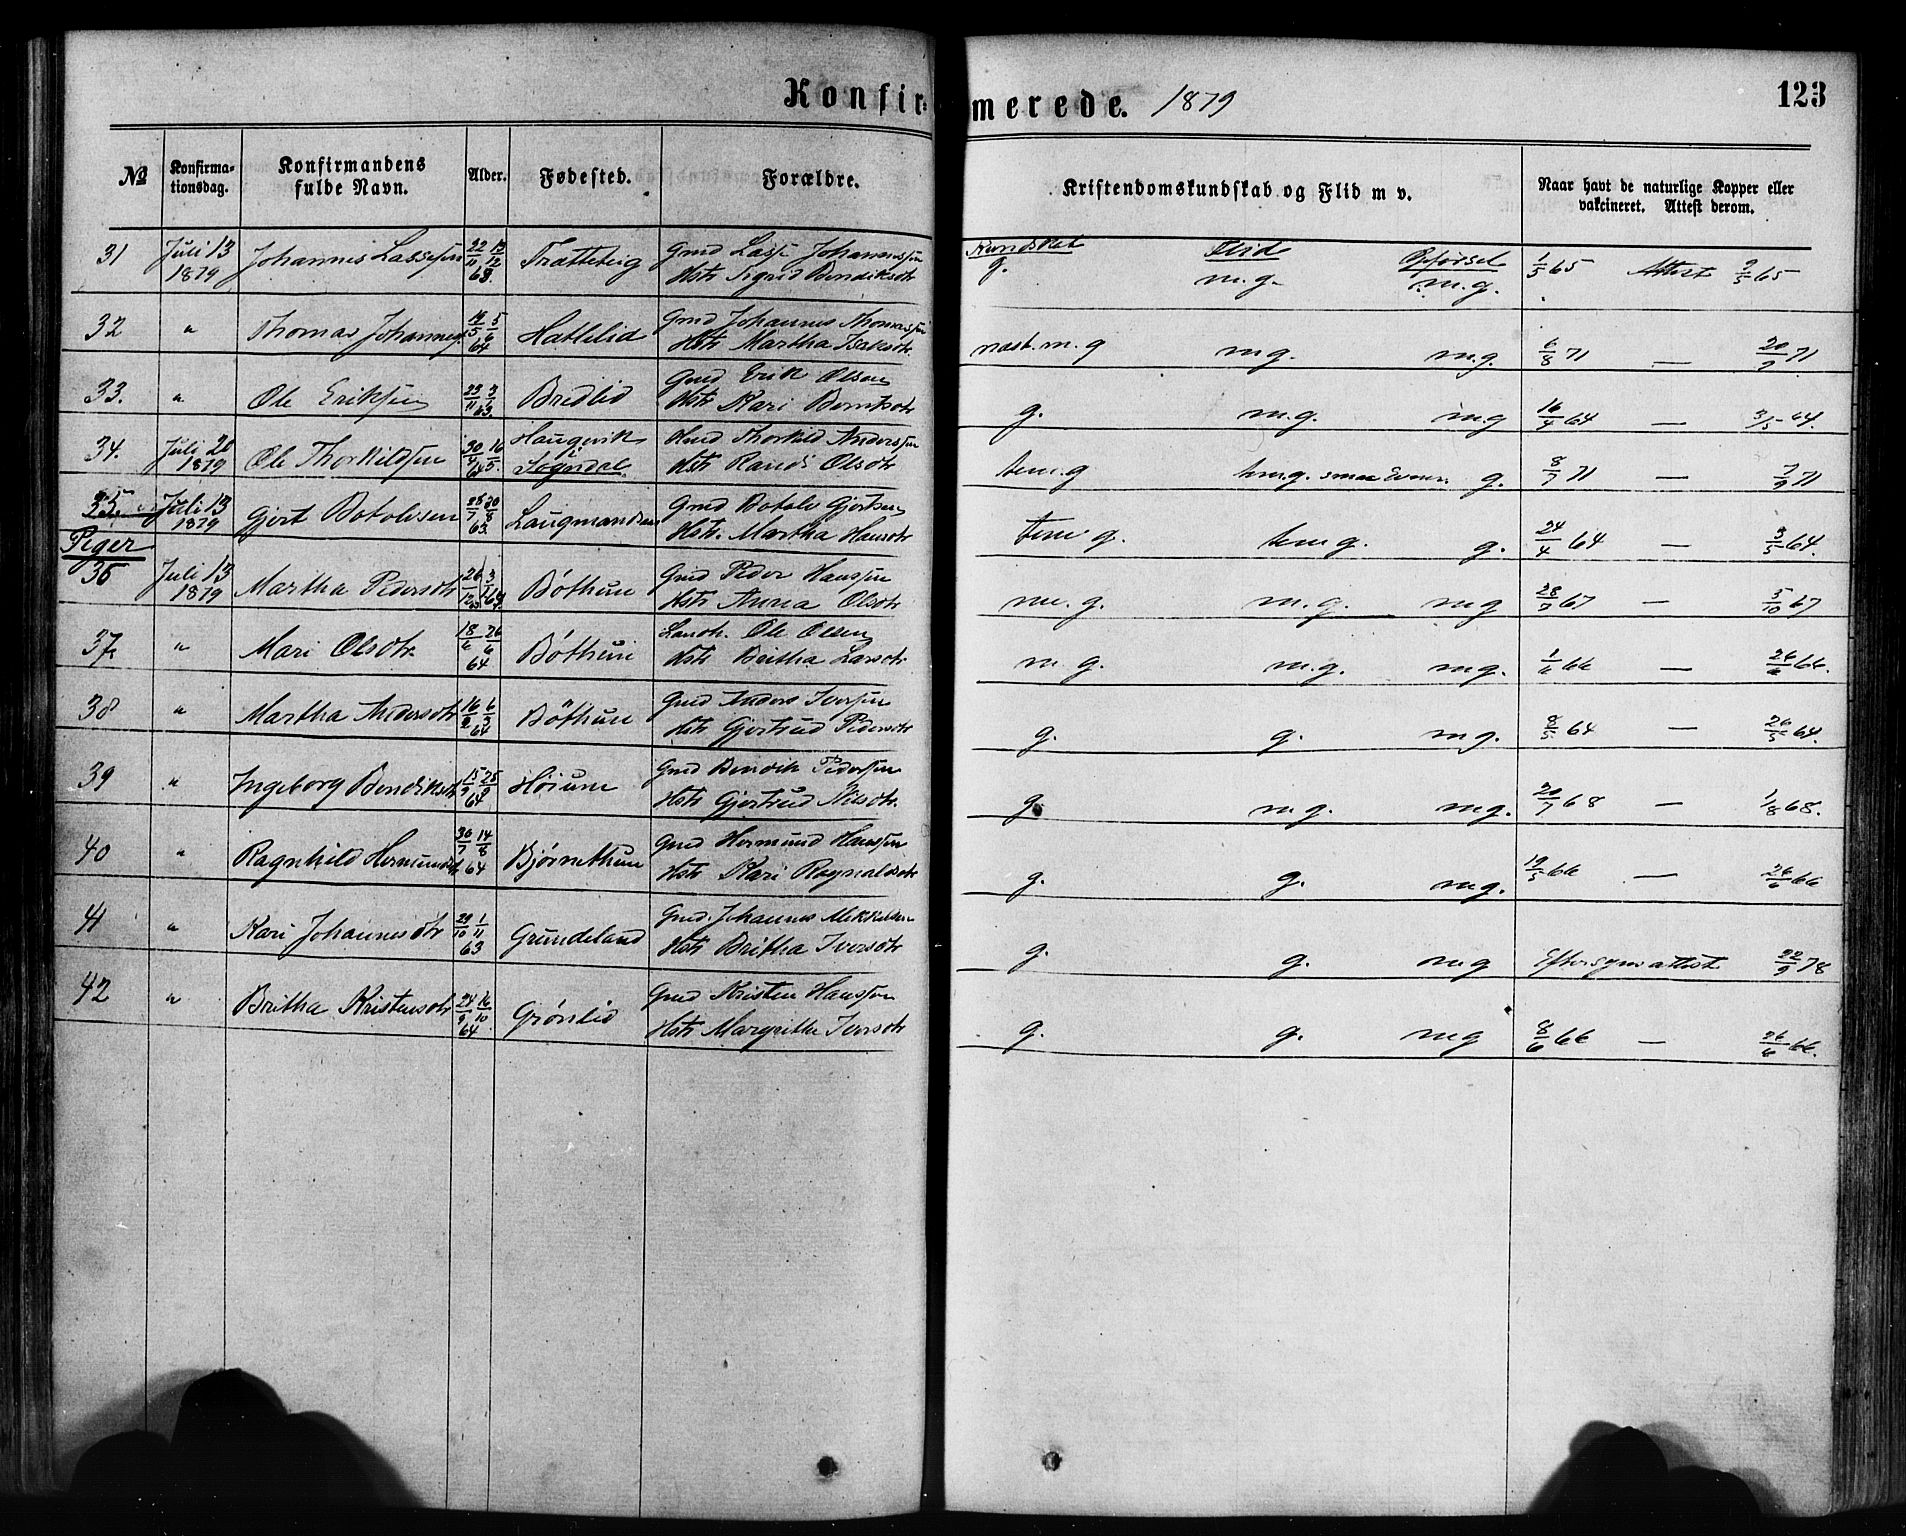 Konfirmerede. 1879
123
No Konfirmationsdag. Konfirmandens fulde Navn. Alder. Fødested. Forældre. Kristendomskundskab og Flid m v. Naar havt de naturlige Kopper eller vakcineret. Attest derom.
Kundskab Flid Opførsel
31 Juli 13 1879 Johannes Lassesen 22/11 13/12 63. Trætteteig Gmd Lasse Johannessen Hstr Sigrid Bendiksdtr g. m.g. m.g. 1/5 65 Attest 2/5 65
32 " Thomas Johannes. 14/5 5/6 64 Hatlelid Gmd Johannes Thomassen Hstr Martha Isaksdtr næst. m.g m.g. m.g. 6/8 71 — 20/9 71
33. " Ole Eriksen 23/11 63. Bredlid Gmd Erik Olsen Hstr Kari Berntsdtr g. m.g. m.g 16/4 64 — 3/5 64.
34. Juli 20 1879 Ole Thorkildsen 30/4 16/5. 64 Haugvik i Sogndal Hmd Thorkild Anderssen Hstr Randi Olsdtr tem.g tem.g. smaa Evner. g. 8/7 71 — 7/9 71
35. Juli 13 1879 Gjert Botolvsen 28/7 20/8 63. Laugmands Gmd Botolv Gjertsen Hstr. Martha Hansdtr tem g. tem g. g. 24/4 64 — 3/5 64.
Piger
36 Juli 13 1879 Martha Pedersdtr 26/12 63 3/1 64 Bøthun Gmd Peder Hanssen Hstr Anna Olsdtr m.g. m.g. m g 28/9 67 — 5/10 67
37. " Mari Olsdtr. 18/6 26/6 64 Bøthun Landh. Ole Olsen Hstr Britha Larsdtr m g. m.g. m g. 1/6 66 — 26/6 66.
38 " Martha Andersdtr 16/2 6/3 64 Bøthun Gmd Anders Iversen Hstr Gjertrud Pedersdtr g. g. m g. 8/5 64 — 26/5 64.
39 " Ingeborg Bendiksdtr 15/9 25/9 64 Høium Gmd Bendik Pedersen Hstr Gjertrud Nilsdtr. g. m g. m g. 20/7 68 — 1/8 68.
40 " Ragnhild Hermundsdtr 30/7 14/8 64 Bjørnethun Gmd Hermund Hanssen Hstr Kari Ragnaldsdtr g. g. m g. 19/5 66 — 26/6 66
41 " Kari Johannesdtr 29/10 1/11 63 Grundeland Gmd. Johannes Mikkelsen Hstr Britha Iversdtr g. g. m g Eftersynsattest 22/9 78
42 " Britha Kristensdtr 24/9 16/10 64 Grønlid Gmd Kristen Hanssen Hstr Margrithe Iversdtr g. g. m g 8/6 66 — 26/6 66.